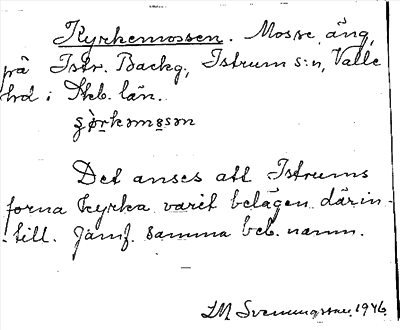 Kyrkemossen. Mosse, äng,
på Istr. Backg, Istrum s:n, Valle
hd i Skb. län.
Det anses att Istrums
forna kyrka varit belägen därin-
till. Jämf. samma beb. namn.
LM Svenungsson 1946.